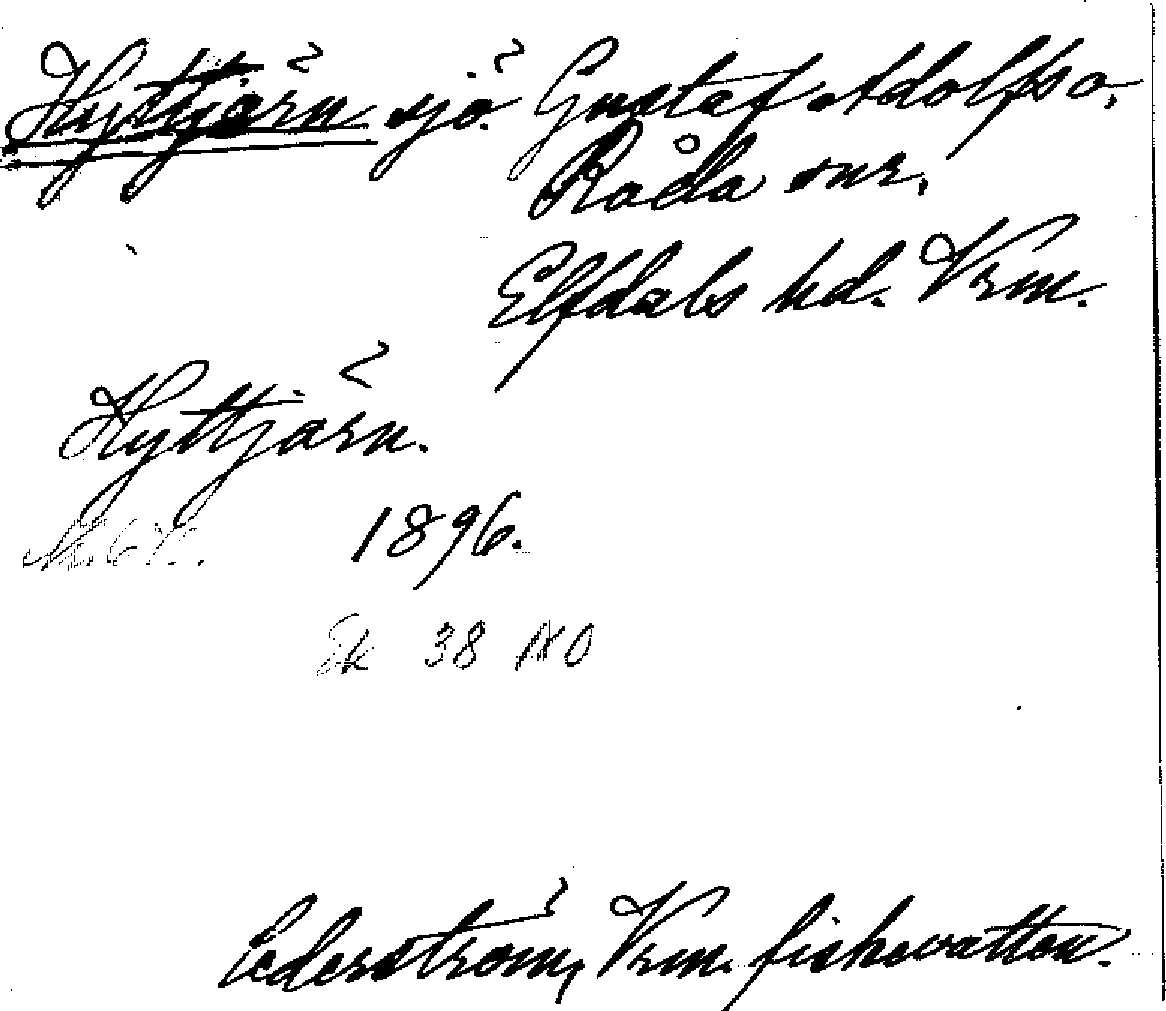 Hyttjärn sjö Gustaf Adolfs o.
Råda snr.
Elfdals hd. Vrm.
Hyttjärn.
1896.
Ek 38 NO
Cederström, Vrm. fiskevatten.